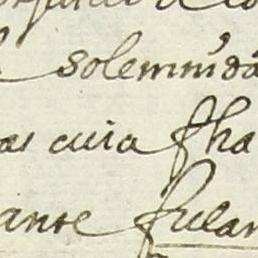 solemnida
as cuia fha
ante fulan